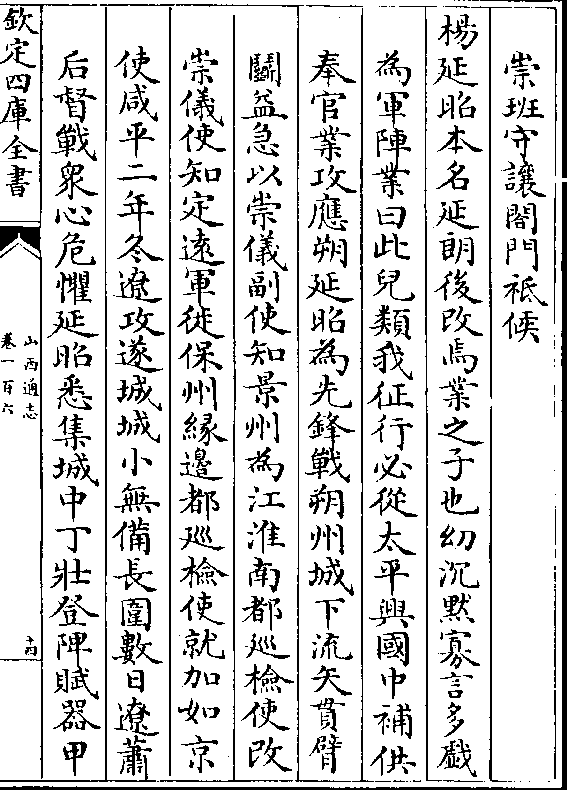 崇班守讓閤門祗候
楊延昭本名延朗後改焉業之子也幼沉默寡言多戲
為軍陣業曰此兒類我征行必從太平興國中補供
奉官業攻應朔延昭為先鋒戰朔州城下流矢貫臂
鬭益急以崇儀副使知景州為江淮南都廵檢使改
崇儀使知定遠軍徙保州緣邊都廵檢使就加如京
使咸平二年冬遼攻遂城城小無備長圍數日遼蕭
后督戰衆心危懼延昭悉集城中丁壯登陴賦器甲
欽定四庫全書
山西通志
卷一百六
十四